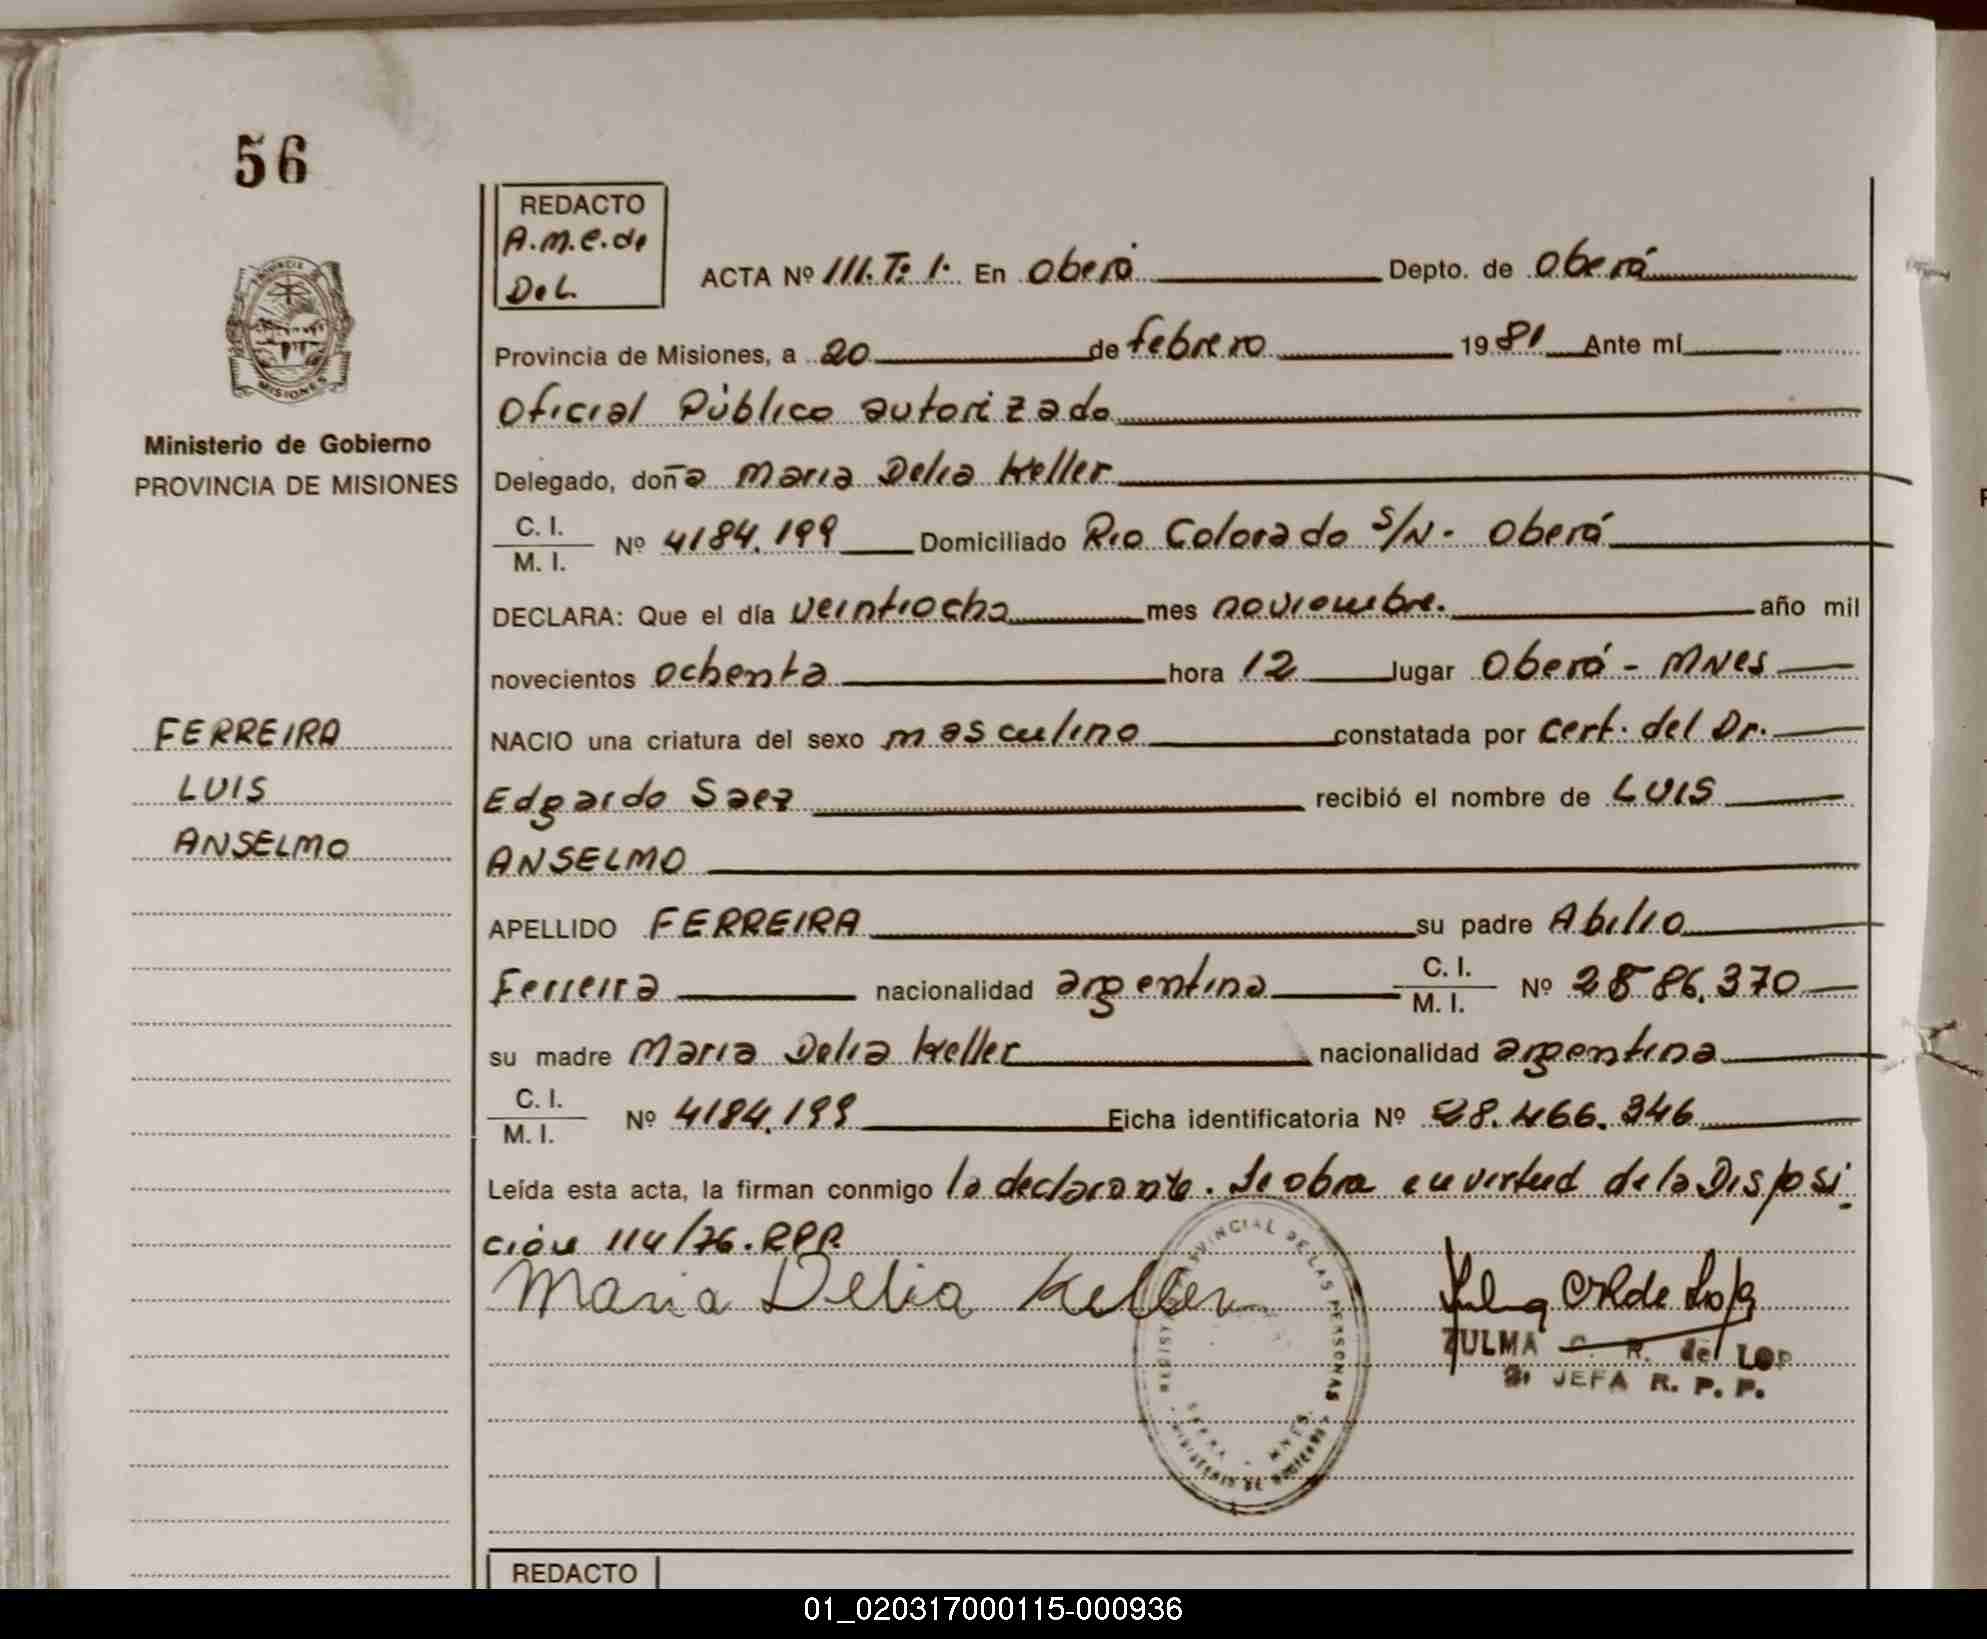 56
REDACTO
A.M.C. de
DeL
ACTA Nº 111. Tº 1. En Oberá Depto. de Oberá
Provincia de Misiones, a 20 de febrero 1981 Ante mí
Oficial Público autorizado
Ministerio de Gobierno
PROVINCIA DE MISIONES
Delegado, doña Maria Delia Keller
C. I.
M. I. Nº 4184.199 Domiciliado Rio Colorado S/N - Oberá
DECLARA: Que el día veintiocho mes noviembre. año mil
novecientos ochenta hora 12 lugar Oberá - MNES
FERREIRA
LUIS
ANSELMO
NACIO una criatura del sexo masculino constatada por Cert. del Dr.
Edgardo Saez recibió el nombre de LUIS
ANSELMO
APELLIDO FERREIRA su padre Abilio
Ferreira nacionalidad argentina C. I. M. I. Nº 2586.370
su madre Maria Delia Keller nacionalidad argentina
C. I.
M. I. Nº 4184.199 Ficha identificatoria Nº 28.466.346
Leída esta acta, la firman conmigo la declarante. Se obra en virtud de la Disposi
ción 114/76. RPP.
Maria Delia Keller
REGISTRO PROVINCIAL DE LAS PERSONAS
MINISTERIO DE GOBIERNO
MNES.
ZULMA C. R. de LOP
JEFA R. P. P.
REDACTO
01_020317000115-000936